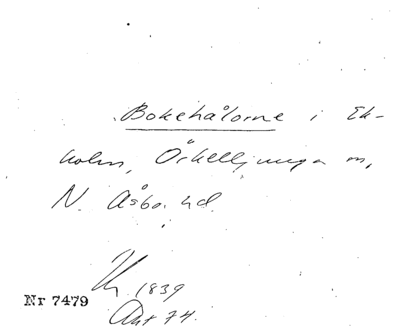 Bokehålorne i Ek-
holm, Örkelljunga sn,
N. Åsbo hd.
1839
Nr 7479
Akt 74